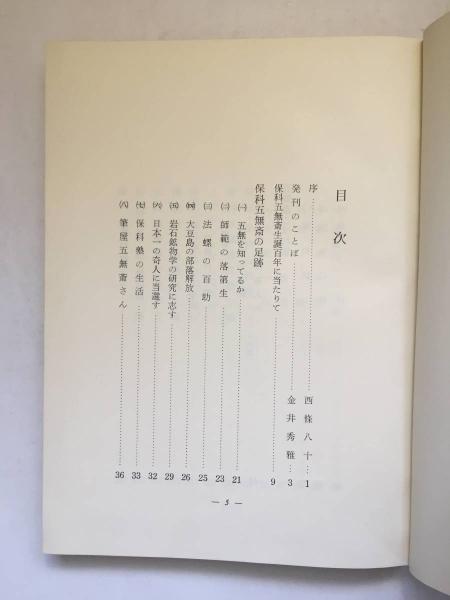 目次
序……西條八十…1
発刊のことば……金井秀雅…3
保科五無斎生誕百年に当たりて……9
保科五無斎の足跡
㈠ 五無を知ってるか……21
㈡ 師範の落第生……23
㈢ 法螺の百助……25
㈣ 大豆島の部落解放……26
㈤ 岩石鉱物学の研究に志す……29
㈥ 日本一の奇人に当選す……32
㈦ 保科塾の生活……33
㈧ 筆屋五無斎さん……36
— 5 —